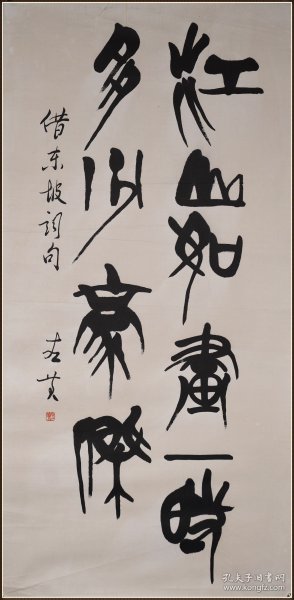 江山如畫一時
多少豪傑
借东坡词句
孔夫子旧书网
www.kongfz.com